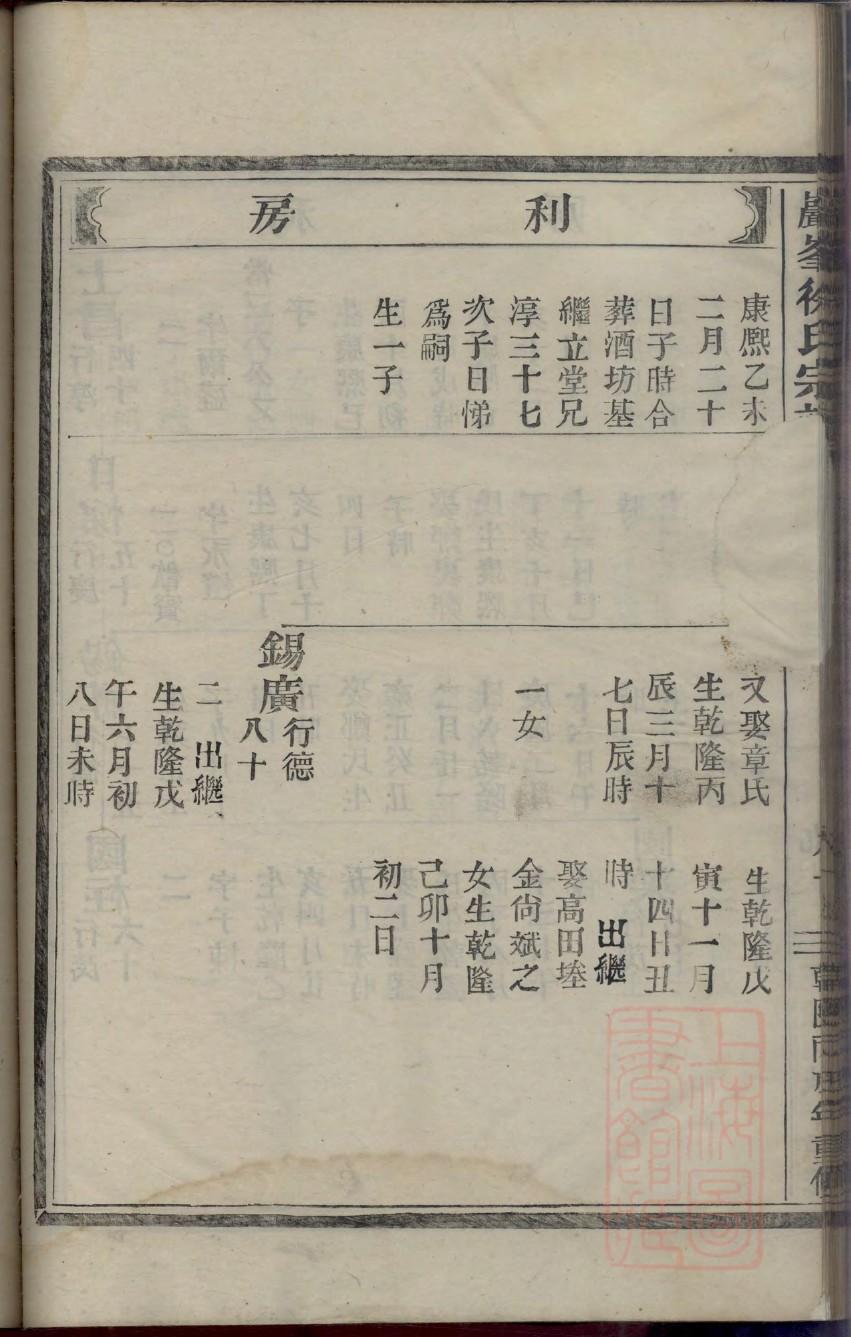 利房
康熈乙未
二月二十
日子時合
葬酒坊基
繼立堂兄
淳三十七
次子日悌
為嗣
生一子
又娶章氏
生乾隆丙
辰三月十
七日辰時
一女
錫廣行德
八十
二 出繼
生乾隆戊
午六月初
八日未時
生乾隆戊
寅十一月
十四日丑
時 出繼
娶高田埁
金尙斌之
女生乾隆
己卯十月
初二日
上海圖書館藏